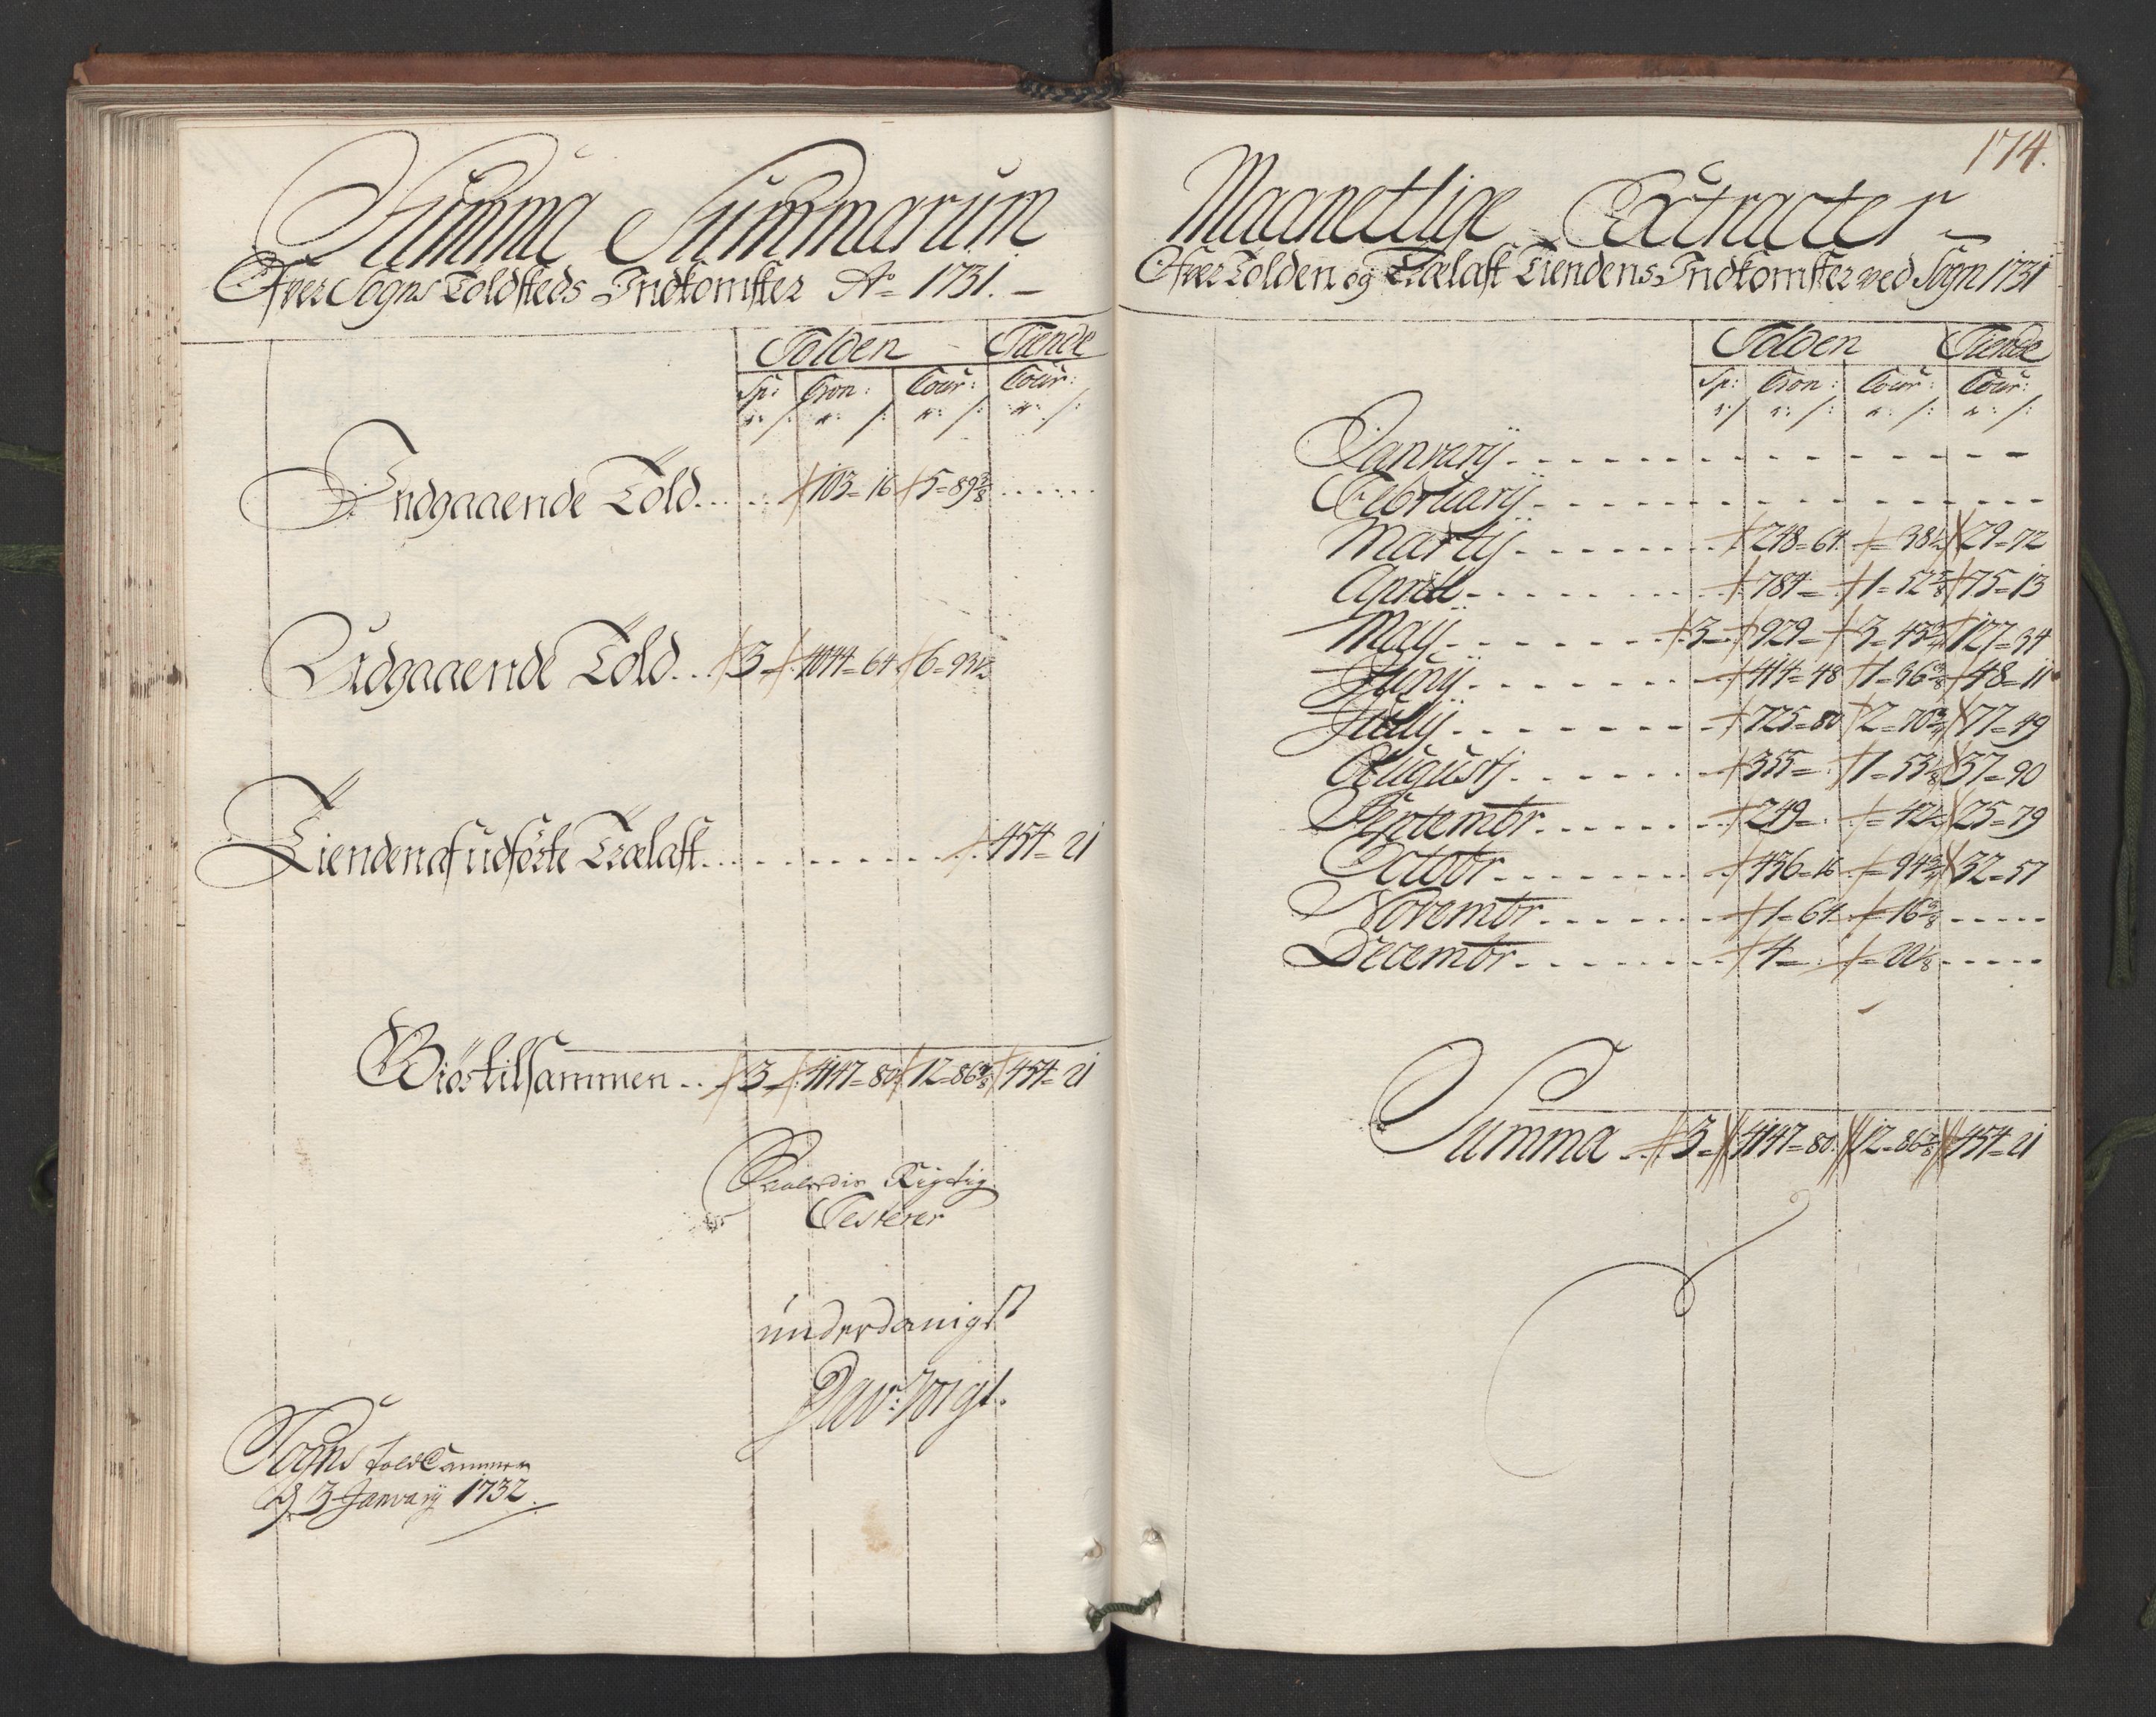 Summa Summarum
Ofver Sogns Toldsteds Indkomster Ao 1731.
Tolden Tiende
Sp: Cron: Cour: Cour:
r: s: r: s: r: s: r: s:
Indgaaende Told 103=16 5=89 3/8
Udgaaende Told 3= 4044=64 6=93 1/2
Tienden af udförte Trælast 454=21
Giör tilsammen 3= 4147=80 12=86 7/8 454=21
Rigtig
Testerer
underdanigst
Dav: Voigt.
Sogns Told Cammer
d. 3 January 1732.
174.
Maanetlige Extracter
Ofver Tolden og Trælast Tiendens Indkomster ved Sogn 1731
Tolden Tiende
Sp: Cron: Cour: Cour:
r: s: r: s: r: s: r: s:
Januarij
Februarij
Martij 248=64 = 38 1/2 29=72
Aprill 784= 1=52 7/8 75=13
Maij 3= 929= 3=43 3/4 127=34
Junij 414=48 1=36 3/8 48=11
Julij 725=80 2=70 3/4 77=49
Augustj 355= 1=53 1/8 37=90
Septembr 249= = 42 1/4 25=79
Octobr 436=16 = 94 3/4 32=57
Novembr 1=64 = 16 3/8
Decembr 4= = 22 1/8
Summa 3= 4147=80 12=86 7/8 454=21